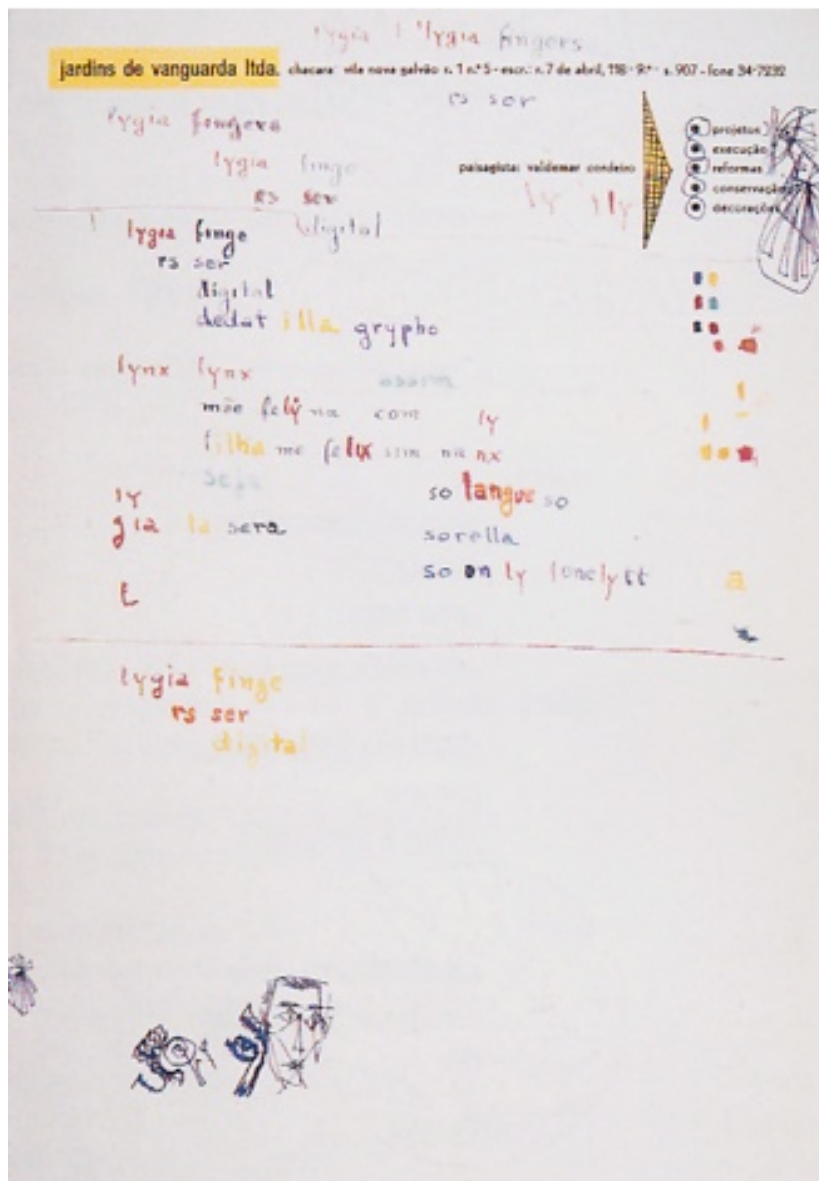 lygia lygia fingers
jardins de vanguarda ltda. chacara: vila nova galvão r. 1 n.º 5 - escr.: r. 7 de abril, 118 - 9.º - s. 907 - fone 34-7232
rs ser
lygia fingers
projetos
execução
lygia finge
paisagista: valdemar cordeiro
reformas
rs ser
ly yly
conservação
decorações
lygia finge digital
rs ser
digital
dedat illa grypho
lynx lynx assim
mãe felyna com ly
filha me felix sim na nx
seja
ly so langue so
gia la sera sorella
so only lonely tt a
l
lygia finge
rs ser
digital